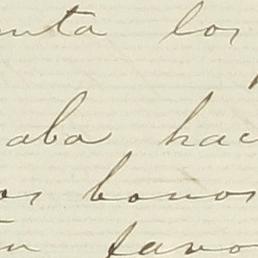 nta los
aba hac
os bonos
favo